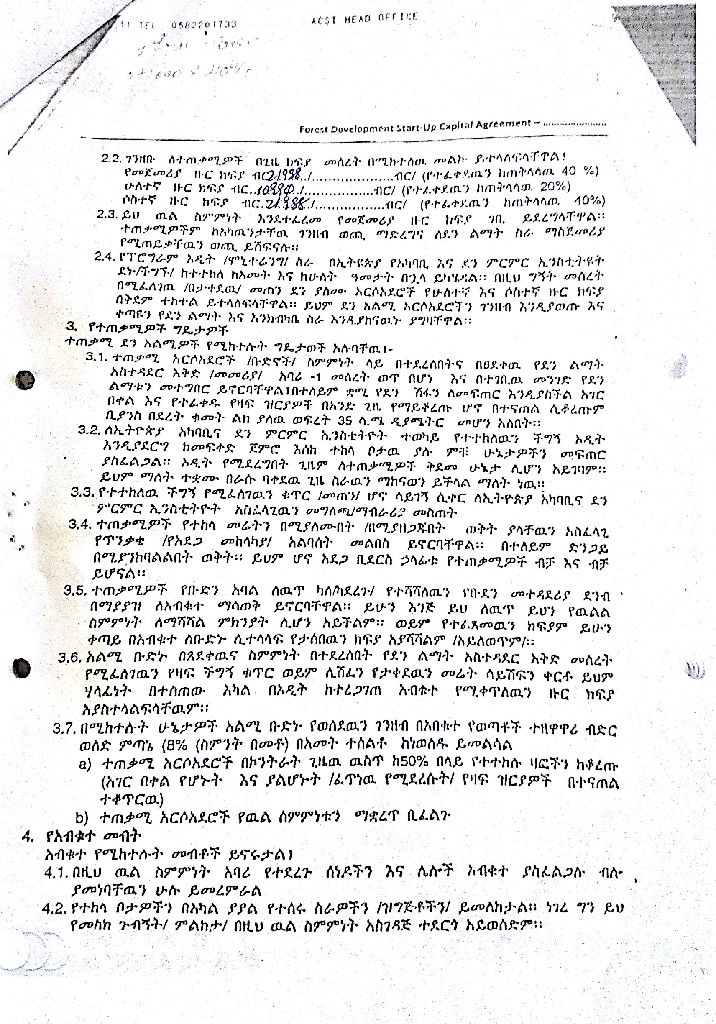 TEL 0582201733 ACSI HEAD OFFICE
Forest Development Start-Up Capital Agreement – ....................
2.2. ገንዘቡ ለተጠቃሚዎች በጊዜ ክፍያ መሰረት በሚከተለዉ መልኩ ይተላለፍላቸዋል፤
የመጀመሪያ ዙር ክፍያ ብር 21988 /....................ብር/ (የተፈቀደዉን ከጠቅላላዉ 40 %)
ሁለተኛ ዙር ክፍያ ብር 10990 /....................ብር/ (የተፈቀደዉን ከጠቅላላዉ 20%)
ሶስተኛ ዙር ክፍያ ብር 21988 /....................ብር/ (የተፈቀደዉን ከጠቅላላዉ 40%)
2.3. ይህ ዉል ስምምነት እንደተፈረመ የመጀመሪያ ዙር ክፍያ ገቢ ይደረግላቸዋል።
ተጠቃሚዎችም ከአካዉንታቸዉ ገንዘብ ወጪ ማድረግና ለደን ልማት ስራ ማስጀመሪያ
የሚጠይቃቸዉን ወጪ ይሸፍናሉ።
2.4. የፕሮግራም ኦዲት /ሞኒተሪንግ/ ስራ በኢትዮጵያ የአካባቢ እና ደን ምርምር ኢንስቲትዩት
ደኑ/ችግኙ/ ከተተከለ ከአመት እና ከሁለት ዓመታት በኋላ ይካሄዳል። በዚህ ግኝት መሰረት
በሚፈለገዉ /በታቀደዉ/ መጠን ደን ያለሙ አርሶአደሮች የሁለተኛ እና ሶስተኛ ዙር ክፍያ
በቅደም ተከተል ይተላለፍላቸዋል። ይህም ደን አልሚ አርሶአደሮችን ገንዘብ እንዲያወጡ እና
ቀጣዩን የደን ልማት እና እንክብካቤ ስራ እንዲያከናዉኑ ያግዛቸዋል።
3. የተጠቃሚዎች ግዴታዎች
ተጠቃሚ ደን አልሚዎች የሚከተሉት ግዴታወች አሉባቸዉ፡-
3.1. ተጠቃሚ አርሶአደሮች /ቡድኖች/ ስምምነት ላይ በተደረሰበትና በፀደቀዉ የደን ልማት
አስተዳደር እቅድ /መመሪያ/ አባሪ -1 መሰረት ወጥ በሆነ እና በተገቢዉ መንገድ የደን
ልማቱን መተግበር ይኖርባቸዋል፤በተለይም ቋሚ የደን ሽፋን ለመፍጠር እንዲያስችል አገር
በቀል እና የተፈቀዱ የዛፍ ዝርያዎች በአንድ ጊዜ የማይቆረጡ ሆኖ በተናጠል ሲቆረጡም
ቢያንስ በደረት ቁመት ልክ ያለዉ ወፍረት 35 ሳ.ሜ ዲያሜትር መሆን አለበት።
3.2. ለኢትዮጵያ አካባቢና ደን ምርምር ኢንስቲትዮት ተወካይ የተተከለዉን ችግኝ ኦዲት
እንዲያደርግ ከመፍቀድ ጀምሮ እስከ ተከላ ቦታዉ ያሉ ምቹ ሁኔታዎችን መፍጠር
ያስፈልጋል። ኦዲት የሚደረግበት ጊዜም ለተጠቃሚዎች ቅደመ ሁኔታ ሊሆን አይገባም።
ይህም ማለት ተቋሙ በራሱ ባቀደዉ ጊዜ ስራዉን ማከናወን ይችላል ማለት ነዉ።
3.3. የተተከለዉ ችግኝ የሚፈለገዉን ቁጥር /መጠን/ ሆኖ ሳይገኝ ሲቀር ለኢትዮጵያ አካባቢና ደን
ምርምር ኢንስቲትዮት አስፈላጊዉን መግለጫ/ማብራሪያ መስጠት
3.4. ተጠቃሚዎች የተከላ መሬትን በሚያለሙበት /በሚያዘጋጁበት ወቅት ያላቸዉን አስፈላጊ
የጥንቃቄ /የአደጋ መከላከያ/ አልባሳት መልበስ ይኖርባቸዋል። በተለይም ድንጋይ
በሚያንከባልሉበት ወቅት። ይህም ሆኖ አደጋ ቢደርስ ኃላፊቱ የተጠቃሚዎች ብቻ እና ብቻ
ይሆናል።
3.5. ተጠቃሚዎች የቡድን አባል ለዉጥ ካለ/ካደረጉ/ የተሻሻለዉን የቡድን መተዳደሪያ ደንብ
በማያያዝ ለአብቁተ ማሳወቅ ይኖርባቸዋል። ይሁን እንጅ ይህ ለዉጥ ይህን የዉልል
ስምምነት ለማሻሻል ምክንያት ሊሆን አይችልም። ወይም የተፈጸመዉን ክፍያም ይሁን
ቀጣይ በአብቁተ ለቡድኑ ሊተላላፍ የታሰበዉን ክፍያ አያሻሽልም /አይለወጥም/።
3.6. አልሚ ቡድኑ በጸደቀዉና ስምምነት በተደረሰበት የደን ልማት አስተዳደር እቅድ መሰረት
የሚፈለገዉን የዛፍ ችግኝ ቁጥር ወይም ሊሸፈን የታቀደዉን መሬት ሳይሸፍን ቀርቶ ይህም
ሃላፊነት በተሰጠው አካል በኦዲት ከተረጋገጠ አብቁተ የሚቀጥለዉን ዙር ክፍያ
አያስተላልፍላቸዉም።
3.7. በሚከተሉት ሁኔታዎች አልሚ ቡድኑ የወሰደዉን ገንዘብ በአብቁተ የወጣቶች ተዘዋዋሪ ብድር
ወለድ ምጣኔ (8% (ስምንት በመቶ) በአመት ተሰልቶ ከነወለዱ ይመልሳል
a) ተጠቃሚ አርሶአደሮች በኮንትራት ጊዜዉ ዉስጥ ከ50% በላይ የተተከሉ ዛፎችን ከቆረጡ
(አገር በቀል የሆኑት እና ያልሆኑት /ፈጥነዉ የሚደረሱት/ የዛፍ ዝርያዎች በተናጠል
ተቆጥርዉ)
b) ተጠቃሚ አርሶአደሮች የዉል ስምምነቱን ማቋረጥ ቢፈልጉ
4. የአብቁተ መብት
አብቁተ የሚከተሉት መብቶች ይኖሩታል፤
4.1. በዚህ ዉል ስምምነት አባሪ የተደረጉ ሰነዶችን እና ሌሎች አብቁተ ያስፈልጋሉ ብሎ
ያመነባቸዉን ሁሉ ይመረምራል
4.2. የተከላ ቦታዎችን በአካል ያያል የተሰሩ ስራዎችን /ዝግጅቶችን/ ይመለከታል። ነገረ ግን ይህ
የመስክ ጉብኝት/ ምልከታ/ በዚህ ዉል ስምምነት አስገዳጅ ተደርጎ አይወሰድም።